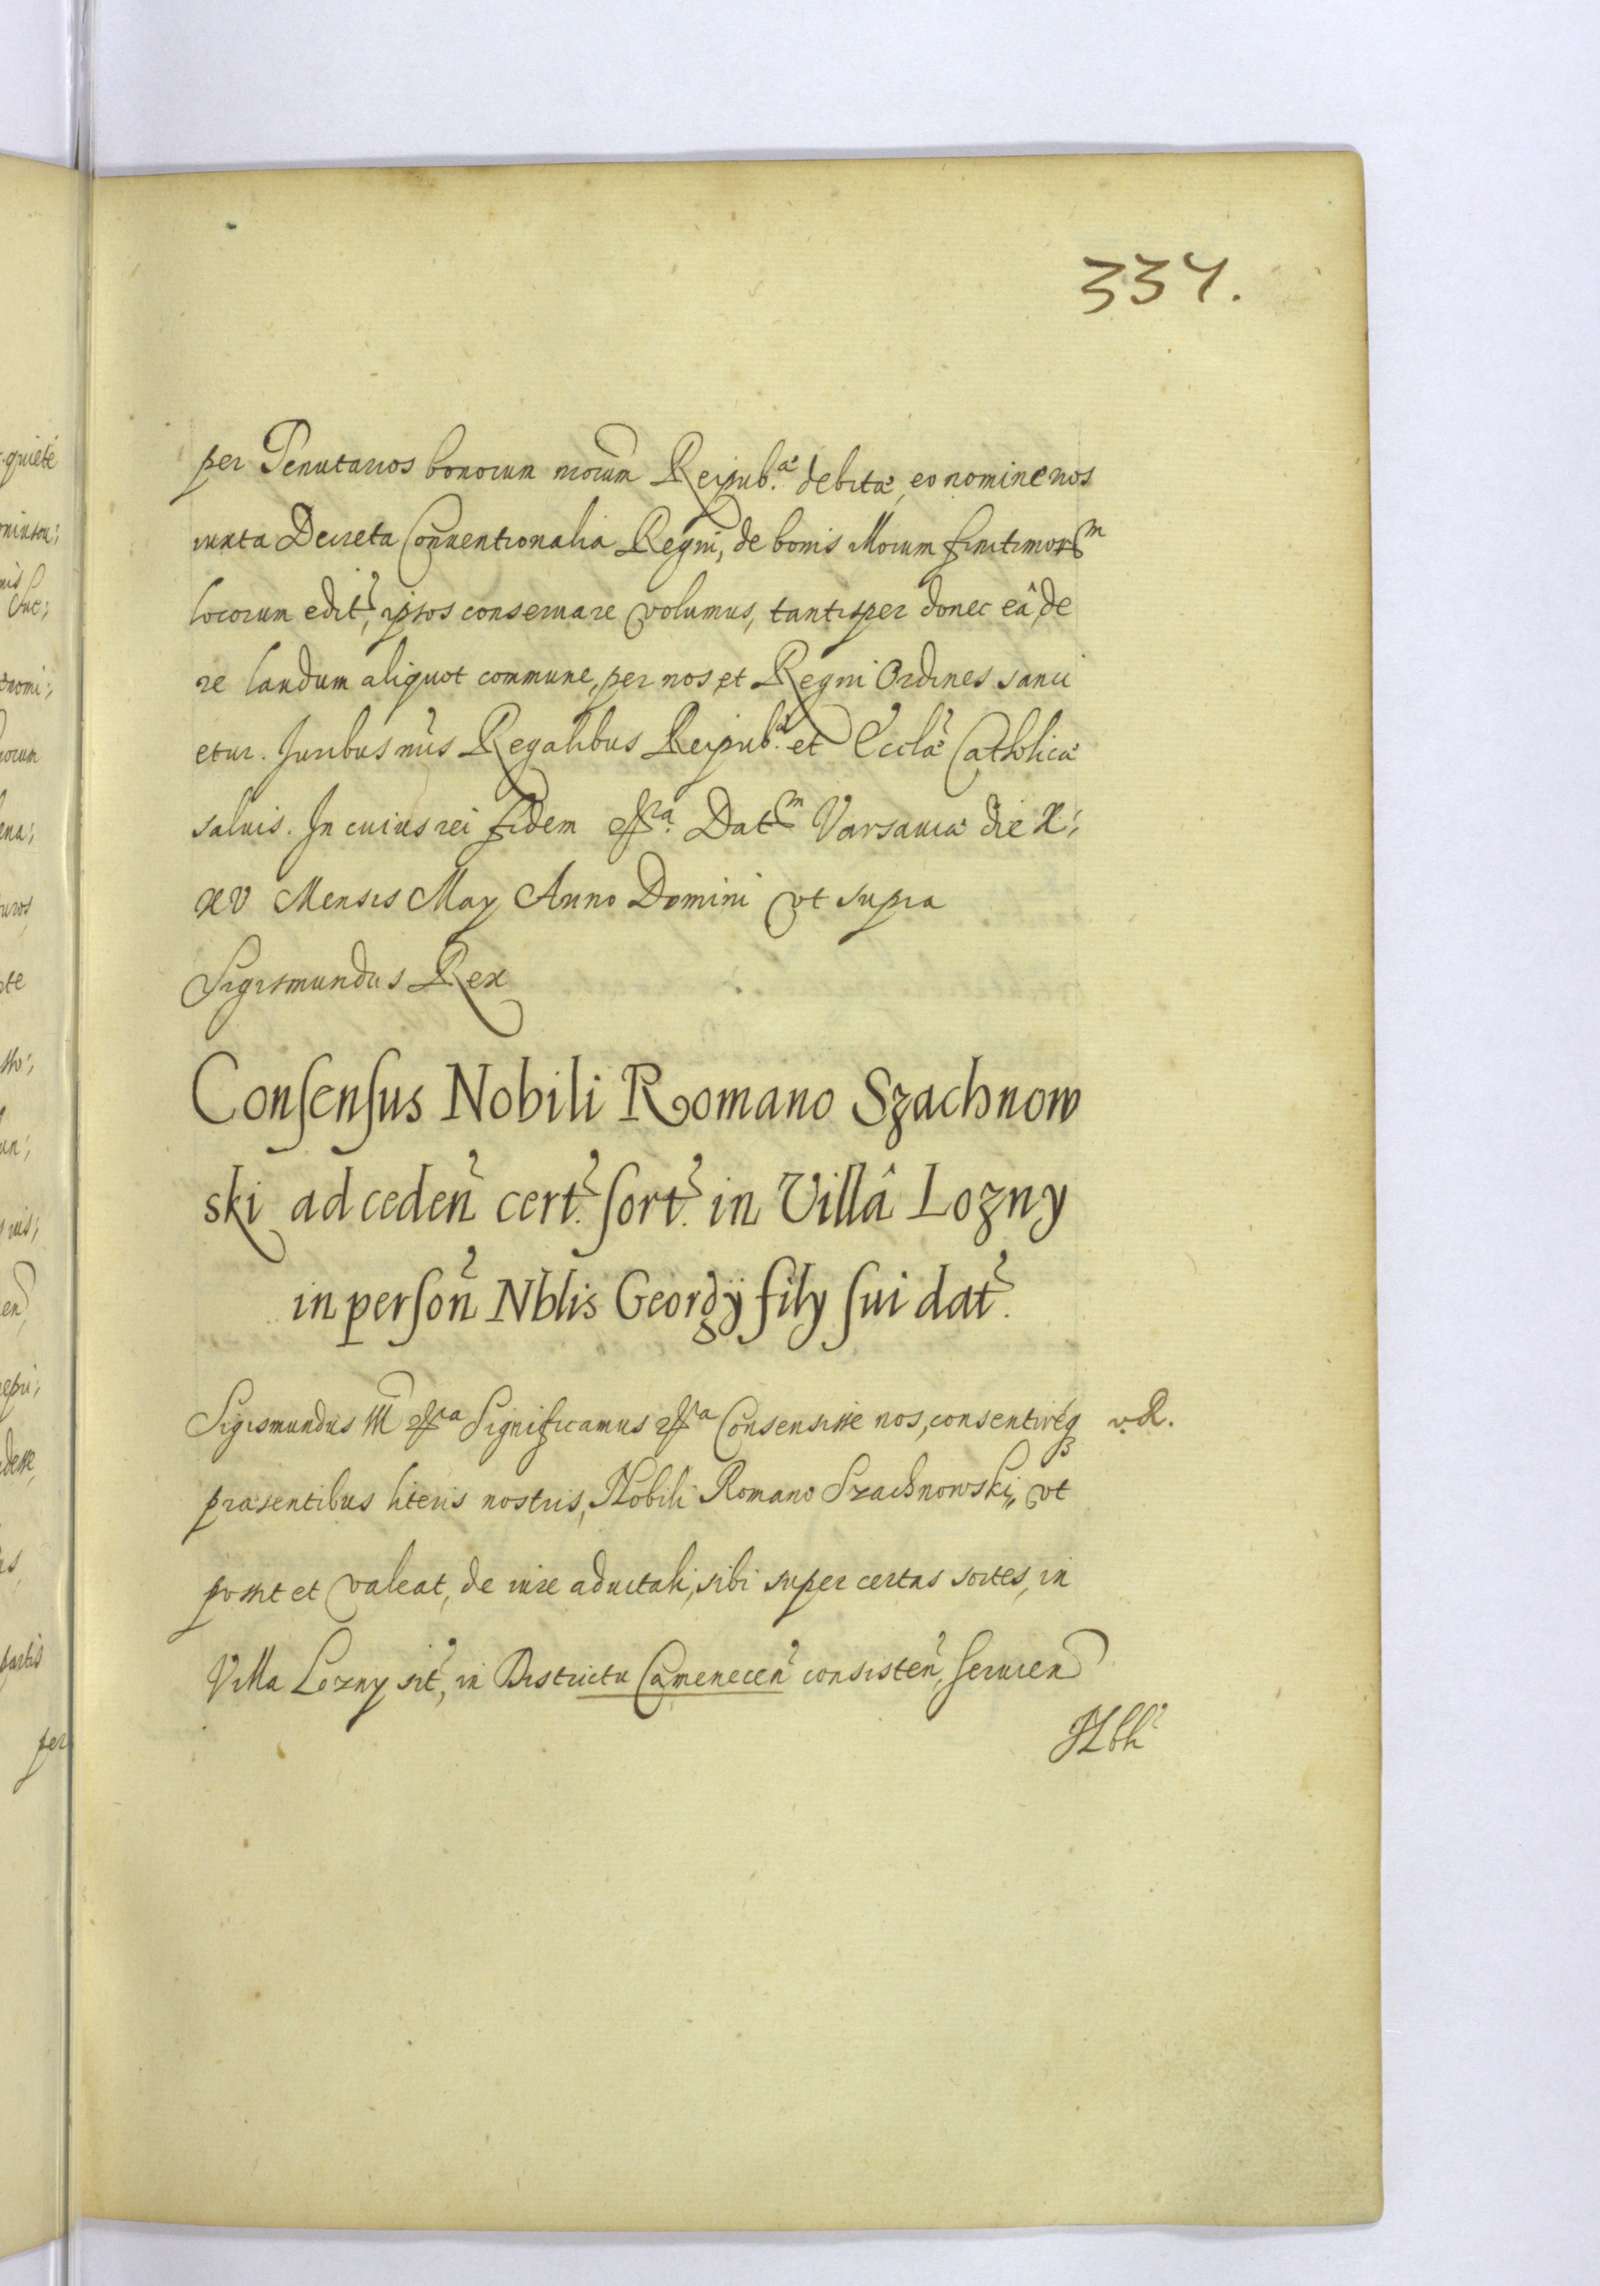 334.
per Tenutarios bonorum nrorum Reipub.ae debitae, eo nomine nos
iuxta Decreta Conuentionalia Regni, de bonis illorum finitimorum
locorum edit, ipsos conseruare volumus, tantisper donec eâ de
re laudum aliquot commune, per nos et Regni Ordines sanci
etur. Juribus nris Regalibus Reipub.ae et Eccla Catholicae
saluis. In cuius rei fidem etc.ra Datm Varsauiae die X;
XV Mensis May Anno Domini vt supra
Sigismundus Rex
Consensus Nobili Romano Szachnow
ski ad ceden cert. sort. in Villâ Lozny
in person Nblis Georgÿ fily sui dat.
Sigismundus III etcra Significamus etcra Consensisse nos, consentireq3 v.R.
praesentibus literis nostris, Nobili Romano Szachnowski, vt
possit et valeat, de iure aduitali, sibi super certas sortes, in
Villa Lozny sit, in Districtu Camenecen consisten, seruien
Nbli